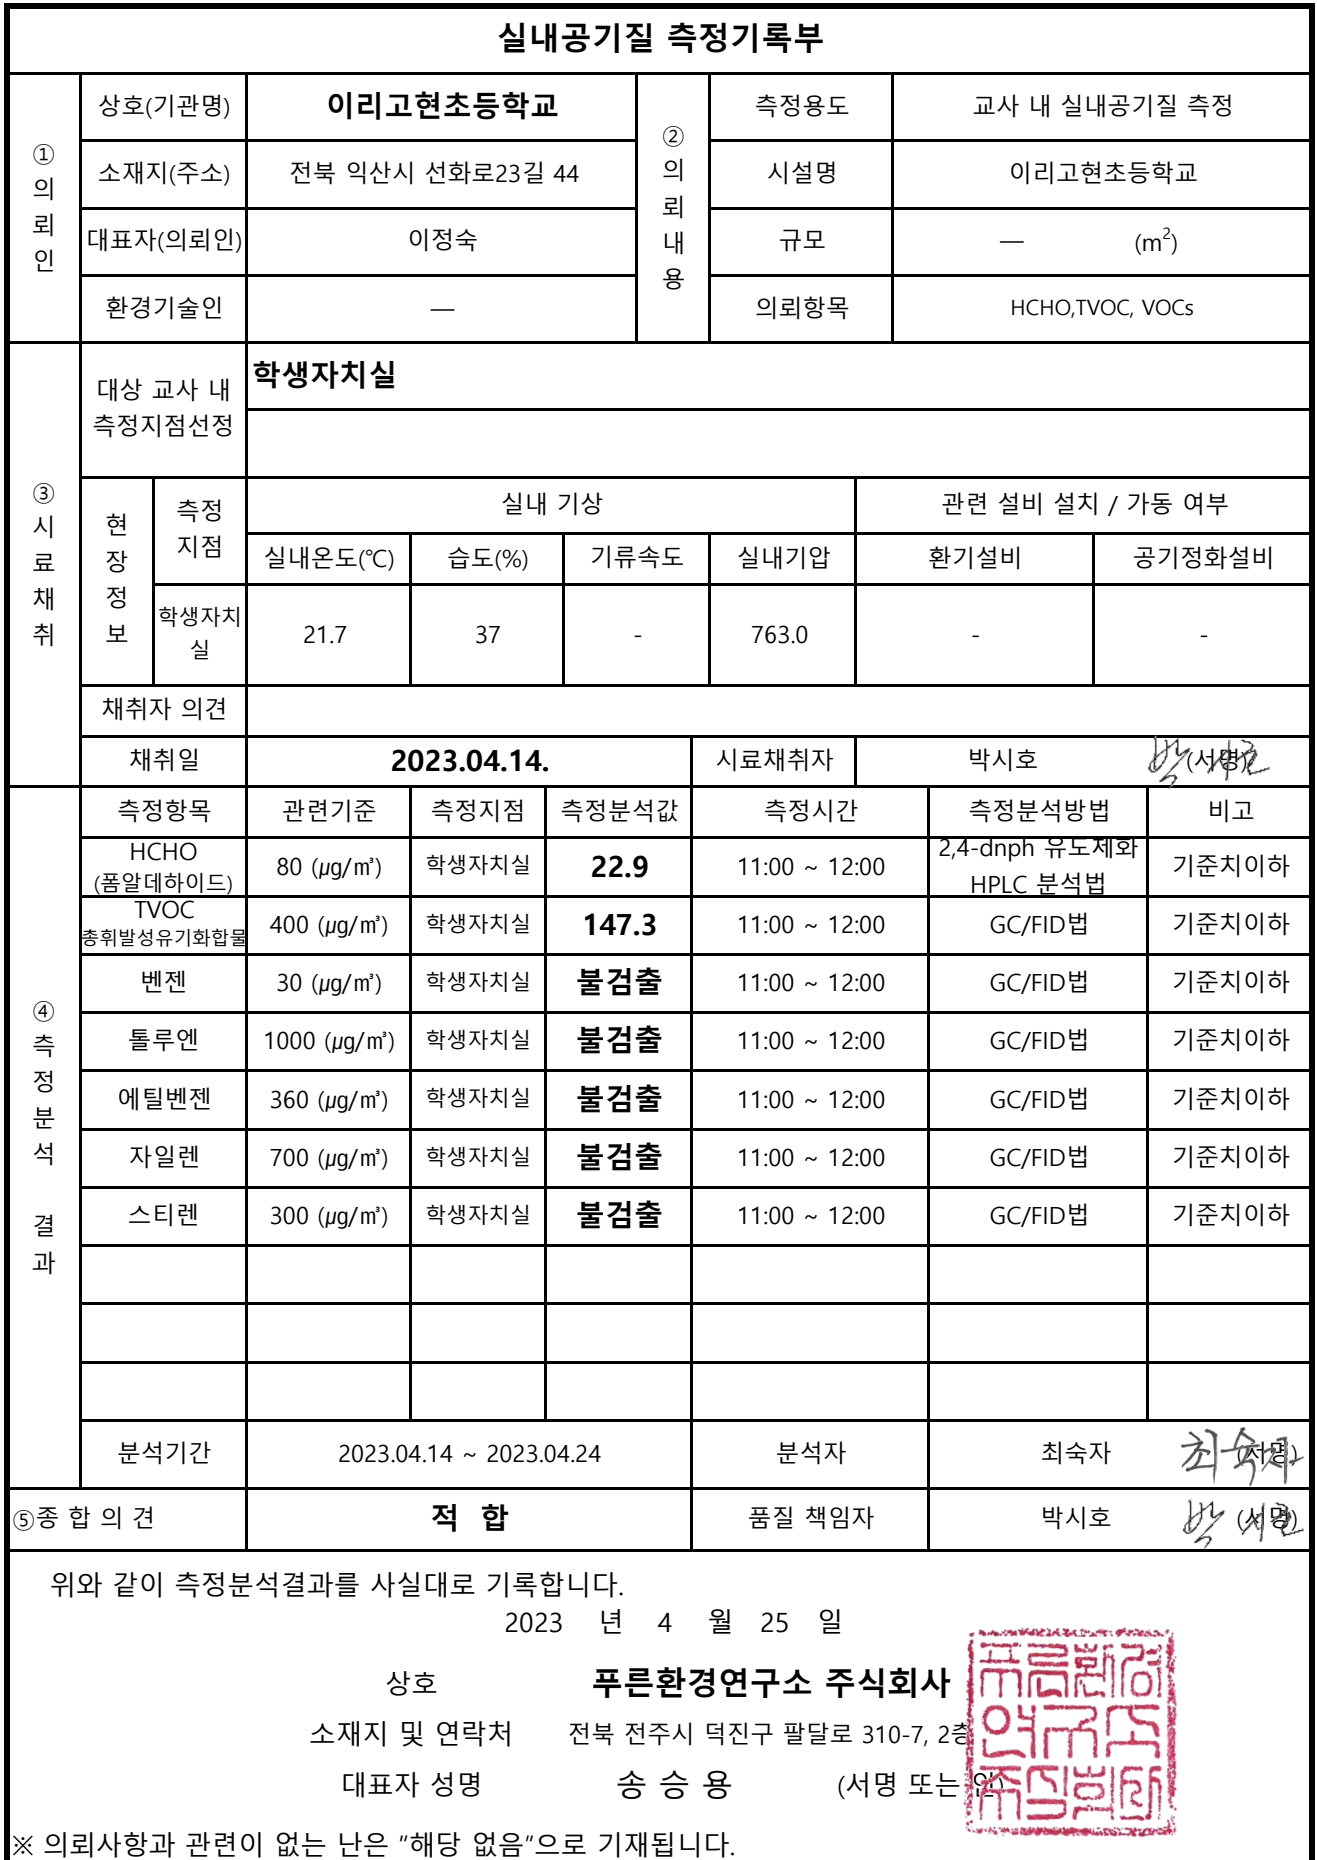 실내공기질 측정기록부
① 의뢰인
상호(기관명) 이리고현초등학교
소재지(주소) 전북 익산시 선화로23길 44
대표자(의뢰인) 이정숙
환경기술인 —
② 의뢰내용
측정용도 교사 내 실내공기질 측정
시설명 이리고현초등학교
규모 — (m²)
의뢰항목 HCHO,TVOC, VOCs
③ 시료채취
대상 교사 내
측정지점선정
학생자치실
현장정보
측정
지점
실내 기상 관련 설비 설치 / 가동 여부
실내온도(℃) 습도(%) 기류속도 실내기압 환기설비 공기정화설비
학생자치
실
21.7 37 - 763.0 - -
채취자 의견
채취일 2023.04.14. 시료채취자 박시호 (서명) 박시호
④ 측정분석 결과
측정항목 관련기준 측정지점 측정분석값 측정시간 측정분석방법 비고
HCHO
(폼알데하이드)
80 (㎍/㎥) 학생자치실 22.9 11:00 ~ 12:00
2,4-dnph 유도체화
HPLC 분석법
기준치이하
TVOC
총휘발성유기화합물
400 (㎍/㎥) 학생자치실 147.3 11:00 ~ 12:00 GC/FID법 기준치이하
벤젠 30 (㎍/㎥) 학생자치실 불검출 11:00 ~ 12:00 GC/FID법 기준치이하
톨루엔 1000 (㎍/㎥) 학생자치실 불검출 11:00 ~ 12:00 GC/FID법 기준치이하
에틸벤젠 360 (㎍/㎥) 학생자치실 불검출 11:00 ~ 12:00 GC/FID법 기준치이하
자일렌 700 (㎍/㎥) 학생자치실 불검출 11:00 ~ 12:00 GC/FID법 기준치이하
스티렌 300 (㎍/㎥) 학생자치실 불검출 11:00 ~ 12:00 GC/FID법 기준치이하
분석기간 2023.04.14 ~ 2023.04.24 분석자 최숙자 (서명) 최숙자
⑤종 합 의 견 적 합 품질 책임자 박시호 (서명) 박시호
위와 같이 측정분석결과를 사실대로 기록합니다.
2023 년 4 월 25 일
상호 푸른환경연구소 주식회사
소재지 및 연락처 전북 전주시 덕진구 팔달로 310-7, 2층
대표자 성명 송 승 용 (서명 또는 인)
푸른환경
연구소
주식회사
※ 의뢰사항과 관련이 없는 난은 "해당 없음"으로 기재됩니다.